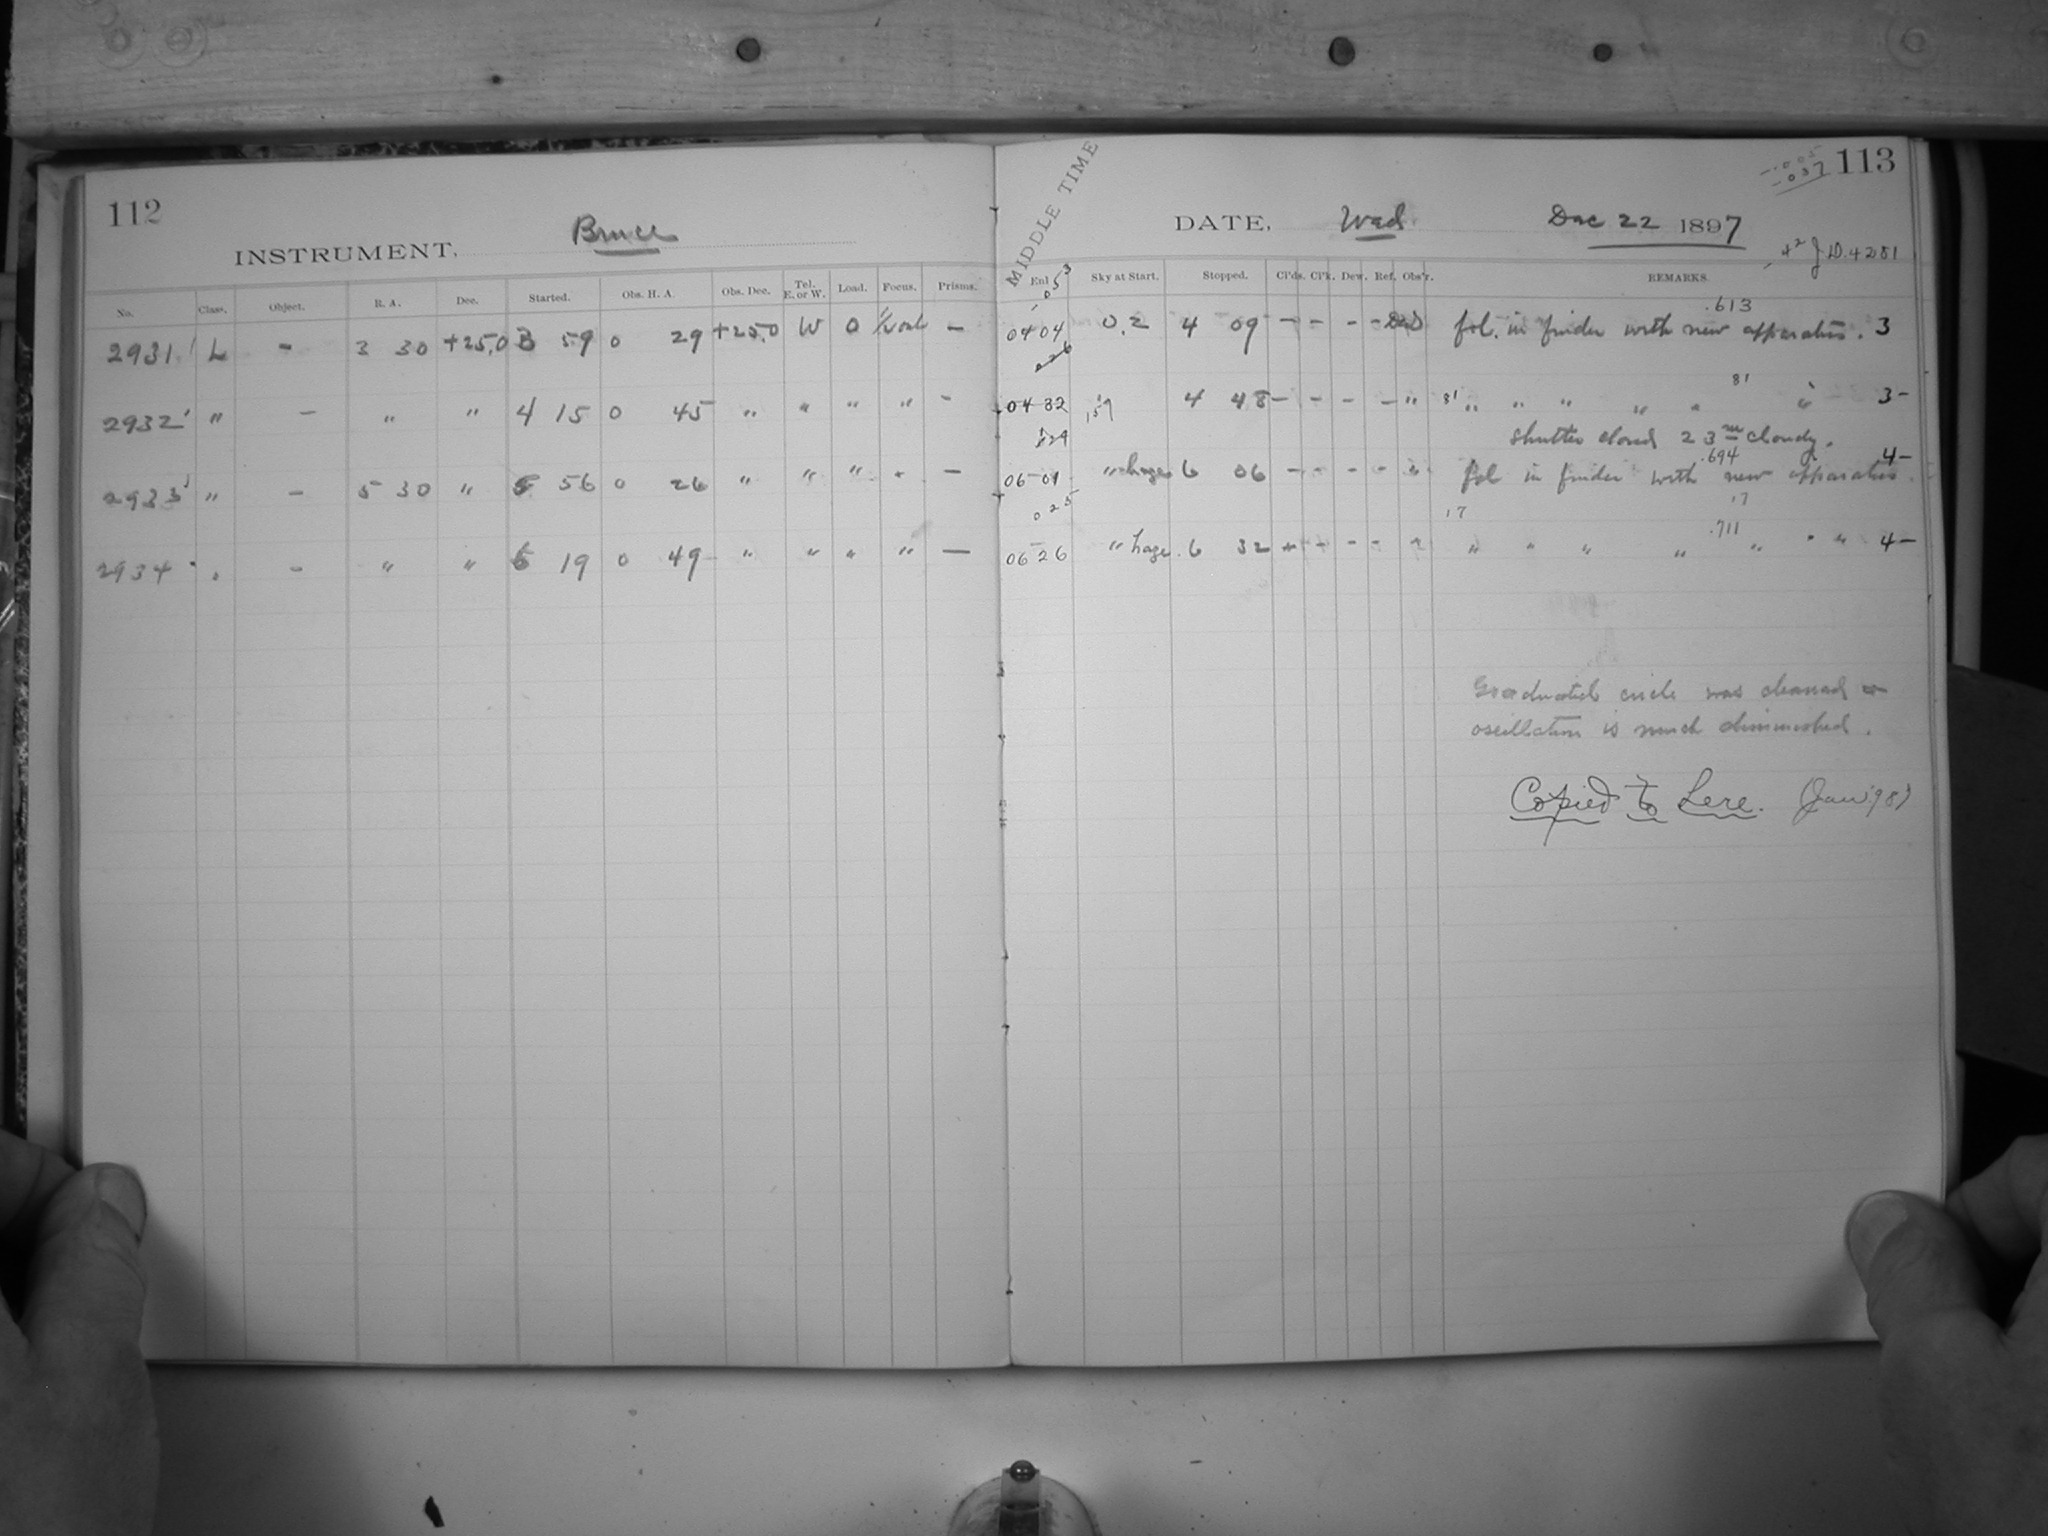 112
INSTRUMENT, Bruce
No. Class. Object. R. A. Dec. Started. Obs. H. A. Obs. Dec. Tel. E. or W. Load. Focus. Prisms.
2931 L - 3 30 +25.0 3 59 0 29 +25.0 W 0 -
2932 " - " " 4 15 0 45 " " " " -
2933 " - 5 30 " 5 56 0 26 " " " " -
2934 " - " " 6 19 0 49 " " " " -
MIDDLE TIME
113
-.005
-037
DATE, Wed Dec 22 1897
J.D. 4281
Enl Sky at Start. Stopped. Cl'ds. Cl'k. Dew. Ref. Obs'r. REMARKS.
.613
04 04 0.2 4 09 - - - - fol. in finder with new apparatus. 3
81
04 32 4 48 - - - - " 81 " " " " " " 3-
shutter closed 23m cloudy.
.694
06 01 " haze 6 06 - - - - " fol in finder with new apparatus. 4-
025
17
17
.711
06 26 " haze. 6 32 - - - " " " " " " " 4-
Graduated circle was cleaned
oscillation is much diminished.
Copied to Lere. (Jan '98)